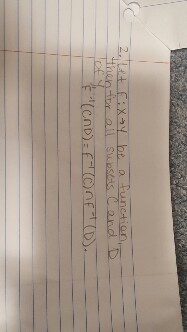 2. Let f: X→Y be a function,
then for all subsets C and D
of Y
f⁻¹(C∩D) = f⁻¹(C) ∩ f⁻¹(D).